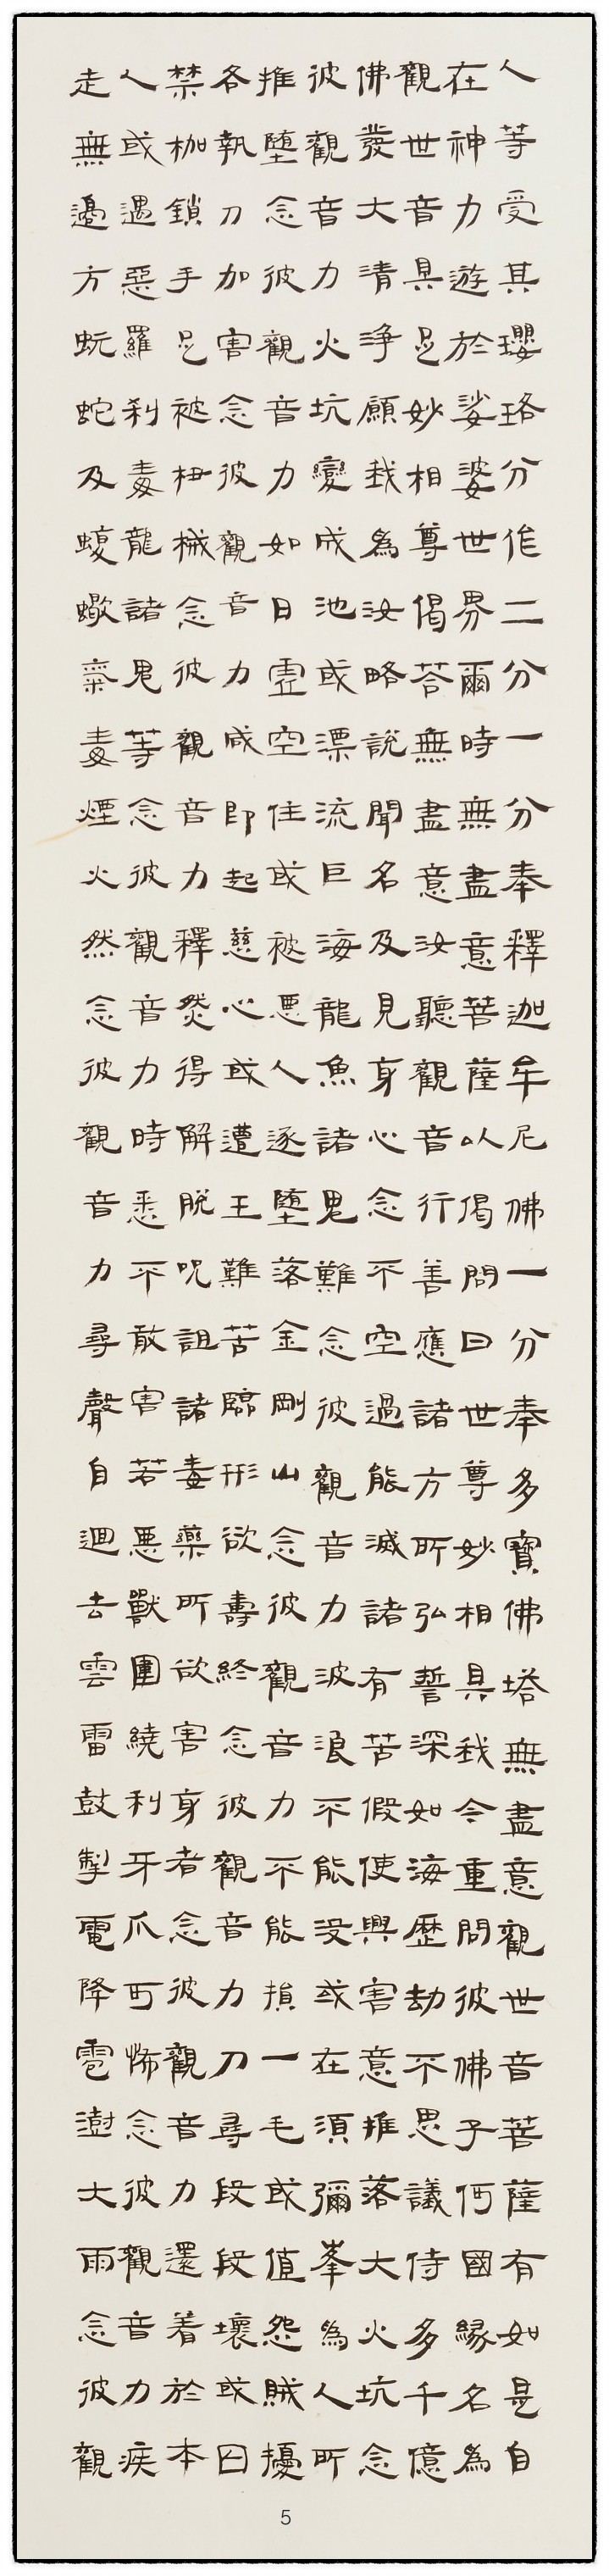 人等受其瓔珞分作二分一分奉釋迦牟尼佛一分奉多寶佛塔無盡意觀世音菩薩有如是自
在神力遊於娑婆世界爾時無盡意菩薩以偈問曰世尊妙相具我今重問彼佛子何國緣名為
觀世音具足妙相尊偈荅無盡意汝聽觀音行善應諸方所弘誓深如海歷劫不思議侍多千億
佛發大清淨願我為汝略說聞名及見身心念不空過能滅諸有苦假使興害意推落大火坑念
彼觀音力火坑變成池或漂流巨海龍魚諸鬼難念彼觀音力波浪不能没或在須彌峯為人所
推墮念彼觀音力如日虛空住或被惡人逐墮落金剛山念彼觀音力不能損一毛或值怨賊擾
各執刀加害念彼觀音力咸即起慈心或遭王難苦臨形欲壽終念彼觀音力刀尋段段壞或囚
禁枷鎖手足被杻械念彼觀音力釋然得解脫呪詛諸毒藥所欲害身者念彼觀音力還着於本
人或遇惡羅剎毒龍諸鬼等念彼觀音力時悉不敢害若惡獸圍繞利牙爪可怖念彼觀音力疾
走無邊方蚖蛇及蝮蠍氣毒煙火然念彼觀音力尋聲自迴去雲雷鼓掣電降雹澍大雨念彼觀
5